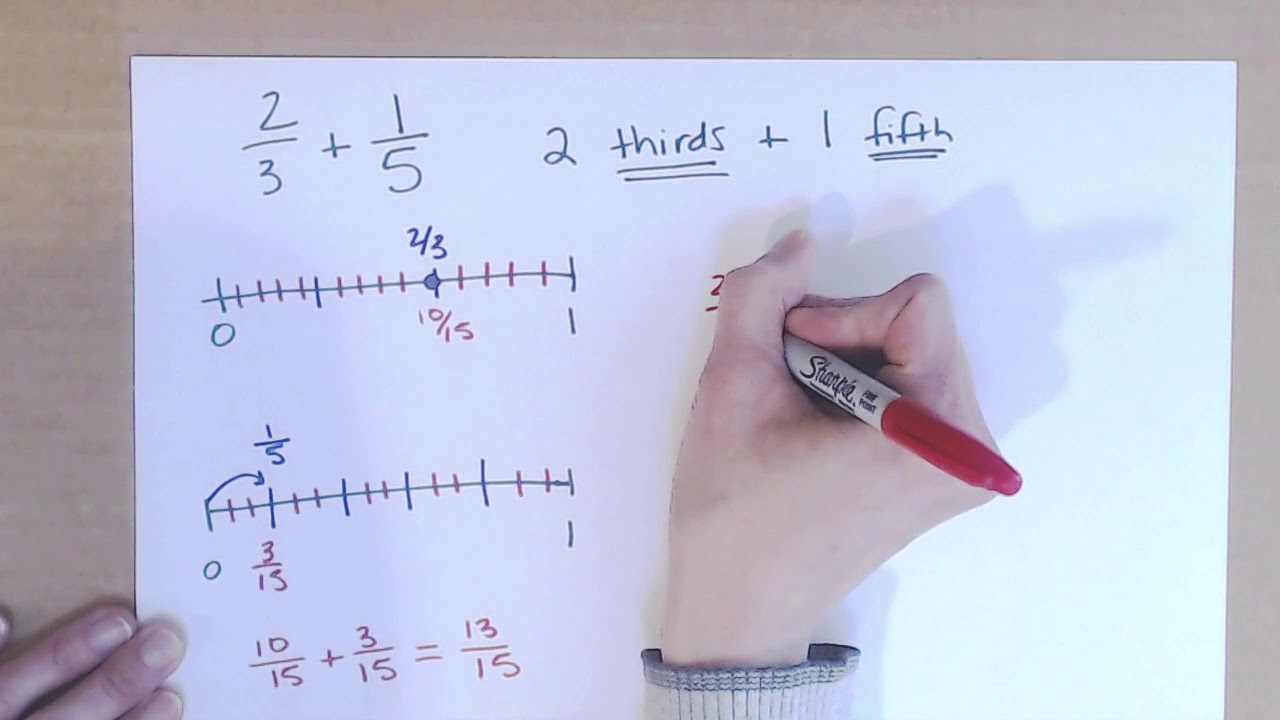 2/3 + 1/5 2 thirds + 1 fifth
2/3
0 10/15 1
1/5
0 3/15 1
10/15 + 3/15 = 13/15
Sharpie.
FINE POINT